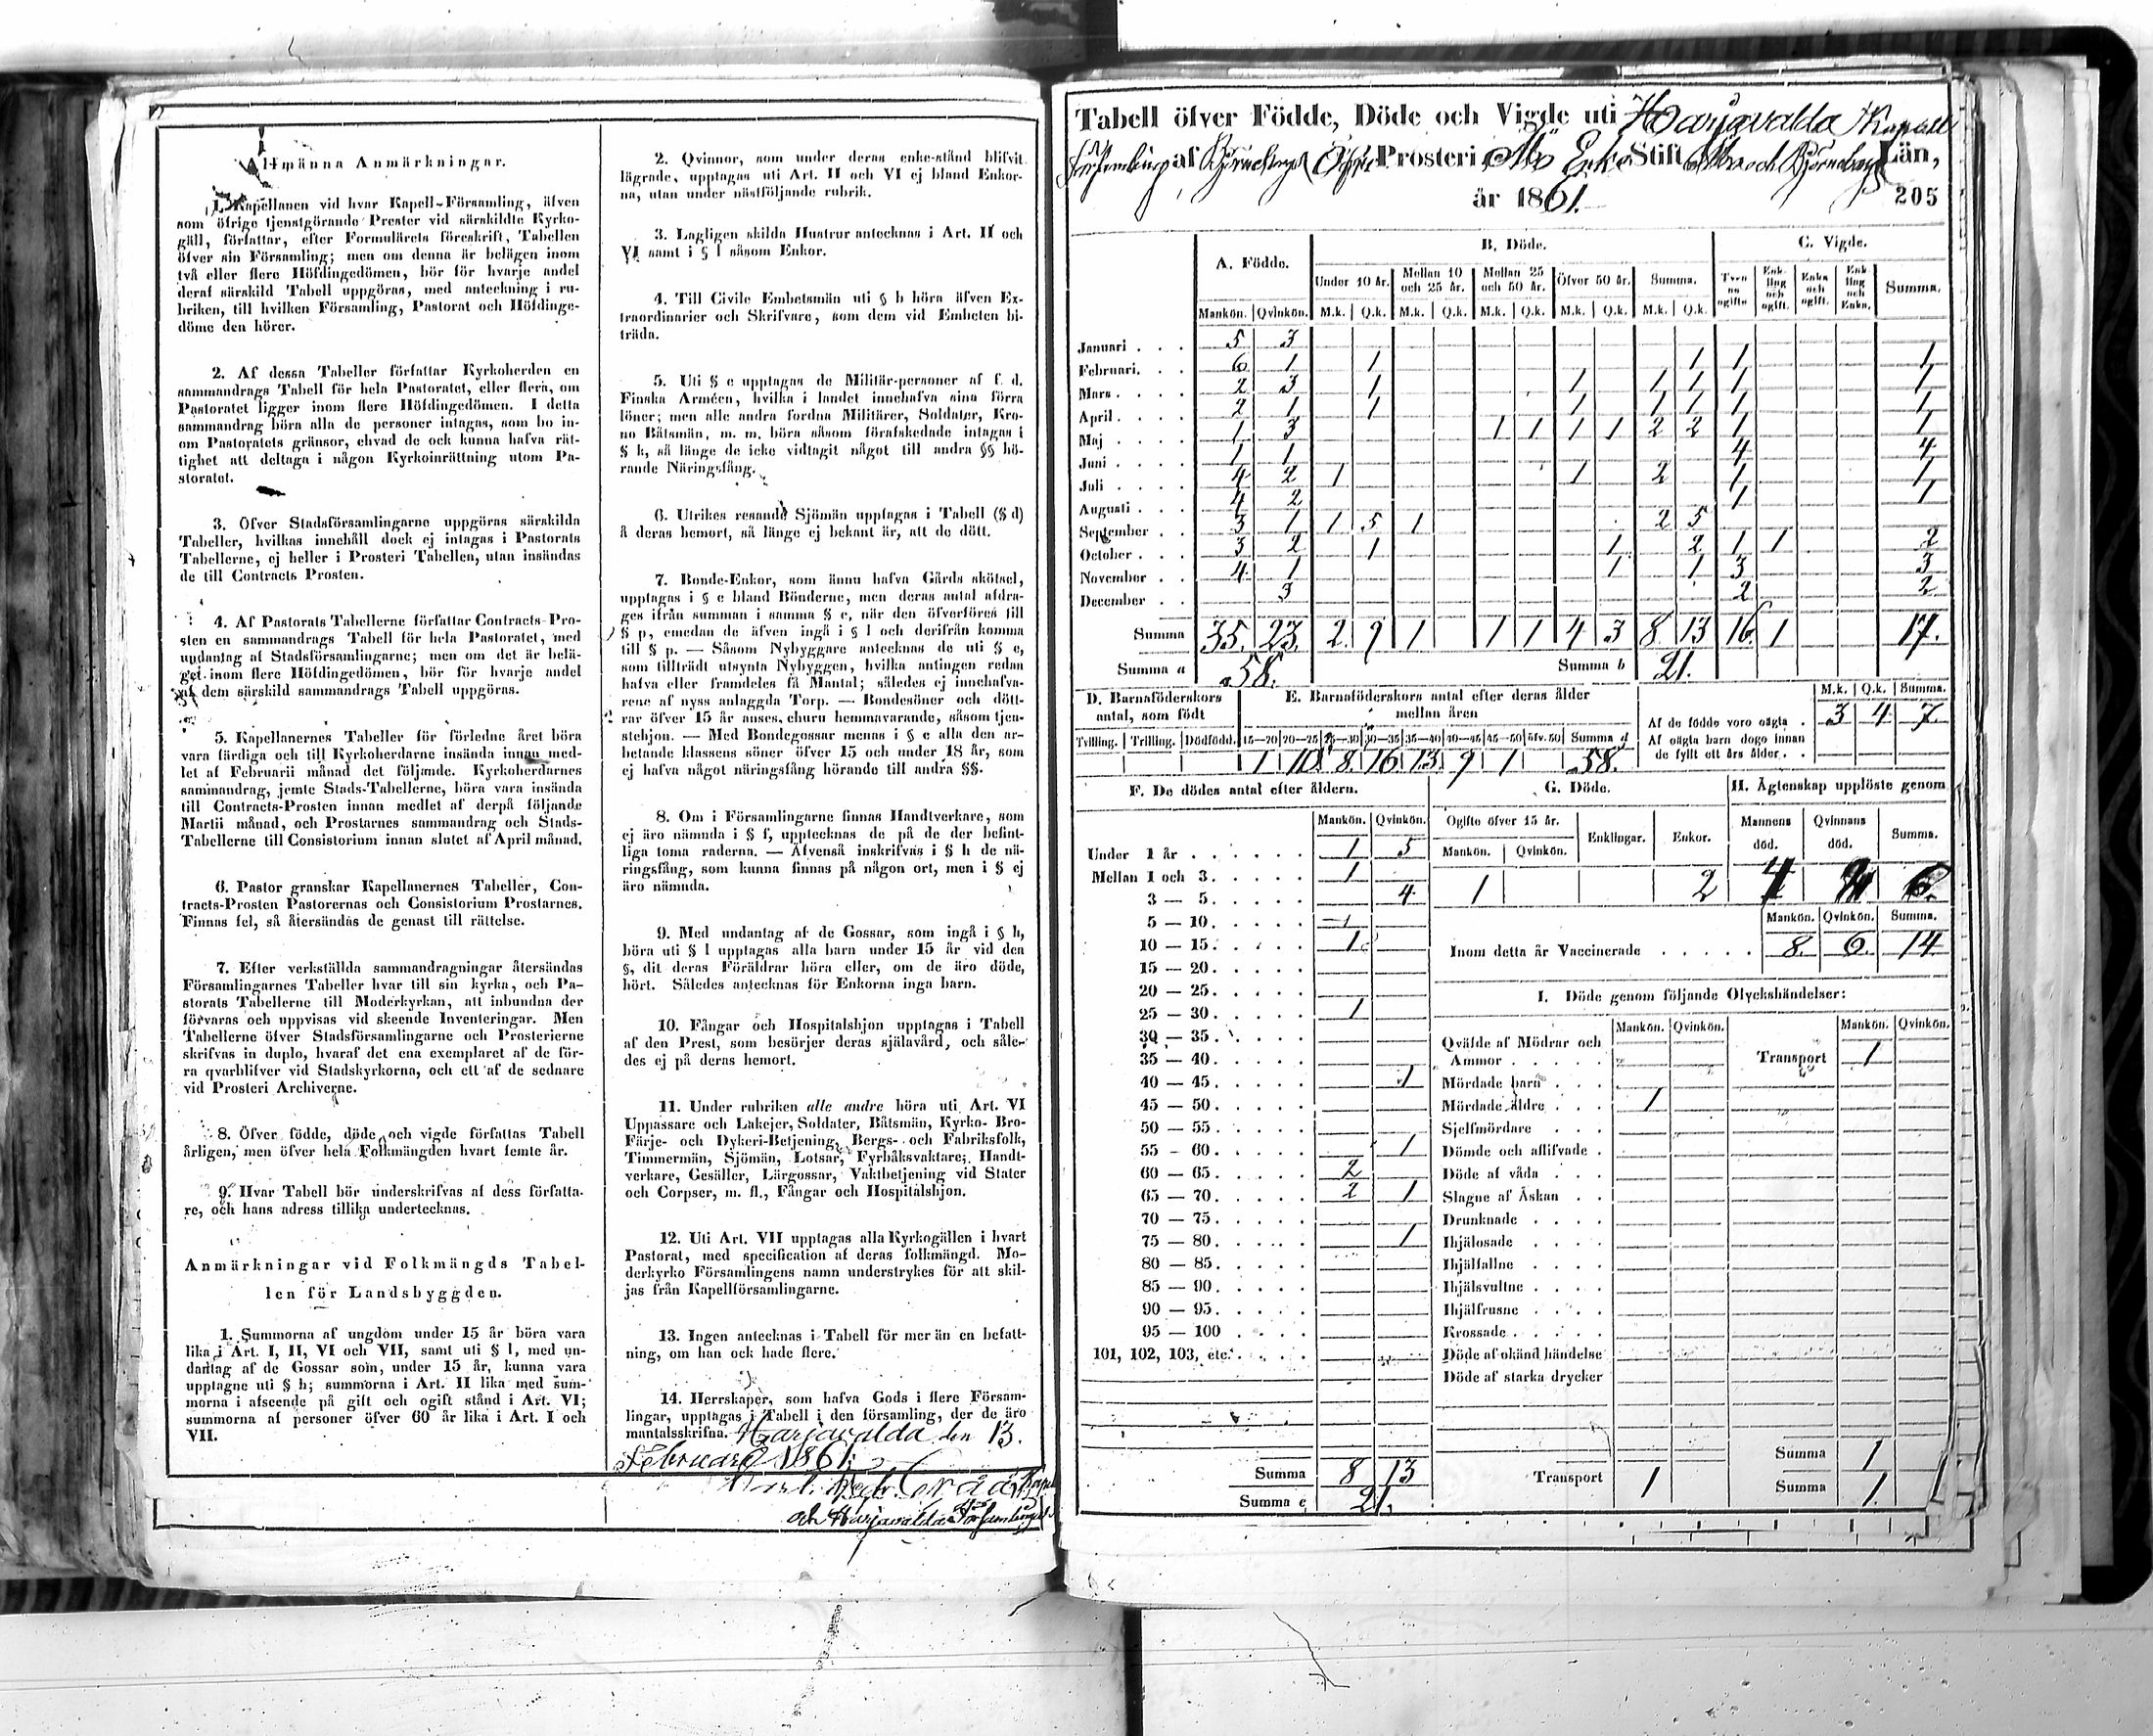 Allmänna Anmärkningar.
1. Kapellanen vid hvar Kapell-Församling, äfven
som öfrige tjenstgörande Prester vid särskildte Kyrko-
gäll, författar, efter Formulärets föreskrift, Tabellen
öfver sin Församling; men om denna är belägen inom
två eller flere Höfdingedömen, bör för hvarje andel
deraf särskild Tabell uppgöras, med anteckning i ru-
briken, till hvilken Församling, Pastorat och Höfdinge-
döme den hörer.
2. Af dessa Tabeller författar Kyrkoherden en
sammandrags Tabell för hela Pastoratet, eller flera, om
Pastoratet ligger inom flere Höfdingedömen. I detta
sammandrag böra alla de personer intagas, som bo in-
om Pastoratets gränsor, ehvad de ock kunna hafva rät-
tighet att deltaga i någon Kyrkoinrättning utom Pa-
storatet.
3. Öfver Stadsförsamlingarne uppgöras särskilda
Tabeller, hvilkas innehåll dock ej intages i Pastorats
Tabellerne, ej heller i Prosteri Tabellen, utan insändas
de till Contracts Prosten.
4. Af Pastorats Tabellerne författar Contracts-Pro-
sten en sammandrags Tabell för hela Pastoratet, med
undantag af Stadsförsamlingarne; men om det är belä-
get inom flere Höfdingedömen, bör för hvarje andel
af dem särskild sammandrags Tabell uppgöras.
5. Kapellanernes Tabeller för förledne året böra
vara färdiga och till Kyrkoherdarne insända innan med-
let af Februarii månad det följande. Kyrkoherdarnes
sammandrag, jemte Stads-Tabellerne, böra vara insända
till Contracts-Prosten innan medlet af derpå följande
Martii månad, och Prostarnes sammandrag och Stads-
Tabellerne till Consistorium innan slutet af April månad.
6. Pastor granskar Kapellanernes Tabeller, Con-
tracts-Prosten Pastorernas och Consistorium Prostarnes.
Finnas fel, så återsändas de genast till rättelse.
7. Efter verkställda sammandragningar återsändas
Församlingarnes Tabeller hvar till sin kyrka, och Pa-
storats Tabellerne till Moderkyrkan, att inbundna der
förvaras och uppvisas vid skeende Inventeringar. Men
Tabellerne öfver Stadsförsamlingarne och Prosterierne
skrifvas in duplo, hvaraf det ena exemplaret af de för-
ra qvarblifver vid Stadskyrkorna, och ett af de sednare
vid Prosteri Archiverne.
8. Öfver födde, döde och vigde författas Tabell
årligen, men öfver hela Folkmängden hvart femte år.
9. Hvar Tabell bör underskrifvas af dess författa-
re, och hans adress tillika undertecknas.
Anmärkningar vid Folkmängds Tabel-
len för Landsbyggden.
1. Summorna af ungdom under 15 år böra vara
lika i Art. I, II, VI och VII, samt uti § l, med un-
dantag af de Gossar som, under 15 år, kunna vara
upptagne uti § h; summorna i Art. II lika med sum-
morna i afseende på gift och ogift stånd i Art. VI;
summorna af personer öfver 60 år lika i Art. I och
VII.
2. Qvinnor, som under deras enke-stånd blifvit
lägrade, upptagas uti Art. II och VI ej bland Enkor-
na, utan under nästföljande rubrik.
3. Lagligen skilda Hustrur antecknas i Art. II och
VI samt i § l såsom Enkor.
4. Till Civile Embetsmän uti § b höra äfven Ex-
traordinarier och Skrifvare, som dem vid Embeten bi-
träda.
5. Uti § c upptagas de Militär-personer af f. d.
Finska Arméen, hvilka i landet innehafva sina förra
löner; men alle andra fordna Militärer, Soldater, Kro-
no Båtsmän, m. m. böra såsom förafskedade intagas i
§ k, så länge de icke vidtagit något till andra §§ hö-
rande Näringsfång.
6. Utrikes resande Sjömän upptagas i Tabell (§ d)
å deras hemort, så länge ej bekant är, att de dött.
7. Bonde-Enkor, som ännu hafva Gårds skötsel,
upptagas i § e bland Bönderne, men deras antal afdra-
ges ifrån summan i samma § e, när den öfverföres till
§ p, emedan de äfven ingå i § l och derifrån komma
till § p. — Såsom Nybyggare antecknas de uti § e,
som tillträdt utsynta Nybyggen, hvilka antingen redan
hafva eller framdeles få Mantal; således ej innehafva-
rene af nyss anlaggda Torp. — Bondesöner och dött-
rar öfver 15 år anses, ehuru hemmavarande, såsom tjen-
stehjon. — Med Bondegossar menas i § e alla den ar-
betande klassens söner öfver 15 och under 18 år, som
ej hafva något näringsfång hörande till andra §§.
8. Om i Församlingarne finnas Handtverkare, som
ej äro nämnda i § f, upptecknas de på de der befint-
liga toma raderna. — Äfvenså inskrifvas i § h de nä-
ringsfång, som kunna finnas på någon ort, men i § ej
äro nämnda.
9. Med undantag af de Gossar, som ingå i § h,
böra uti § l upptagas alla barn under 15 år vid den
§, dit deras Föräldrar höra eller, om de äro döde,
hört. Således antecknas för Enkorna inga barn.
10. Fångar och Hospitalshjon upptagas i Tabell
af den Prest, som besörjer deras själavård, och såle-
des ej på deras hemort.
11. Under rubriken alle andre höra uti Art. VI
Uppassare och Lakejer, Soldater, Båtsmän, Kyrko- Bro-
Färje- och Dykeri-Betjening, Bergs- och Fabriksfolk,
Timmermän, Sjömän, Lotsar, Fyrbåksvaktare; Handt-
verkare, Gesäller, Lärgossar, Vaktbetjening vid Stater
och Corpser, m. fl., Fångar och Hospitalshjon.
12. Uti Art. VII upptagas alla Kyrkogällen i hvart
Pastorat, med specification af deras folkmängd. Mo-
derkyrko Församlingens namn understrykes för att skil-
jas från Kapellförsamlingarne.
13. Ingen antecknas i Tabell för mer än en befatt-
ning, om han ock hade flere.
14. Herrskaper, som hafva Gods i flere Försam-
lingar, upptagas i Tabell i den församling, der de äro
mantalsskrifna. Harjavalda den 13.
Februarii 1861.
och Harjavalda Församlings
Tabell öfver Födde, Döde och Vigde uti Harjavalda Kapell
Församling af Björneborgs Öfre Prosteri Åbo Erke Stift Åbo och Björneborgs Län,
år 1861. 205
A. Födde. B. Döde. C. Vigde.
Under 10 år. Mellan 10 och 25 år. Mellan 25 och 50 år. Öfver 50 år. Summa. Tvenne ogifte Enkling och ogift. Enka och ogift. Enkling och Enka. Summa.
Mankön. Qvinkön. M.k. Q.k. M.k. Q.k. M.k. Q.k. M.k. Q.k. M.k. Q.k.
Januari . . . 5 3
Februari. . . 6 1 1 1 1 1
Mars . . . . 2 3 1 1 1 1 1 1
April . . . . 2 1 1 1 1 1 1 1
Maj . . . . 1 3 1 1 1 1 2 2 1 1
Juni . . . . 1 1 4 4
Juli . . . . 4 2 1 1 2 1 1
Augusti . . . 4 2 1 1
September . . 3 1 1 5 1 2 5
October . . . 3 2 1 1 2 1 1 2
November . . 4 1 1 1 3 3
December . . 3 2 2
Summa 35. 23. 2. 9 1 1 1 4 3 8 13 16. 1 17.
Summa a 58. Summa b 21.
D. Barnaföderskors antal, som födt
Tvilling. Trilling. Dödfödd.
E. Barnaföderskors antal efter deras ålder
mellan åren
15—20 20—25 25—30 30—35 35—40 40—45 45—50 öfv. 50 Summa d
1 10 8 16 13 9 1 58.
M.k. Q.k. Summa.
Af de födde voro oägta . 3 4 7.
Af oägta barn dogo innan
de fyllt ett års ålder. .
F. De dödes antal efter åldern.
Mankön. Qvinkön.
Under 1 år . . . . . . 1 5
Mellan 1 och 3. . . . . 1
3 — 5. . . . . 4
5 — 10. . . . .
10 — 15. . . . . 1
15 — 20. . . . .
20 — 25. . . . .
25 — 30. . . . . 1
30 — 35. . . . .
35 — 40. . . . .
40 — 45. . . . . 1
45 — 50. . . . .
50 — 55. . . . .
55 — 60. . . . . 1
60 — 65. . . . . 2
65 — 70. . . . . 2 1
70 — 75. . . . .
75 — 80. . . . . 1
80 — 85. . . . .
85 — 90. . . . .
90 — 95. . . . .
95 — 100 . . . .
101, 102, 103, etc. . . . .
Summa 8 13
Summa e 21.
G. Döde.
Ogifte öfver 15 år. Enklingar. Enkor.
Mankön. Qvinkön.
1 2
H. Ägtenskap upplöste genom
Mannens död. Qvinnans död. Summa.
4 2 6.
Mankön. Qvinkön. Summa.
Inom detta år Vaccinerade . . . . . 8. 6. 14
I. Döde genom följande Olyckshändelser:
Mankön. Qvinkön. Mankön. Qvinkön.
Qväfde af Mödrar och
Ammor . . . . Transport 1
Mördade barn . . .
Mördade äldre . . . 1
Sjelfmördare . . .
Dömde och aflifvade .
Döde af våda . . .
Slagne af Åskan . .
Drunknade . . . .
Ihjälosade . . . .
Ihjälfallne . . . .
Ihjälsvultne . . . .
Ihjälfrusne . . . .
Krossade . . . . .
Döde af okänd händelse
Döde af starka drycker
Summa 1
Transport 1 Summa 1.